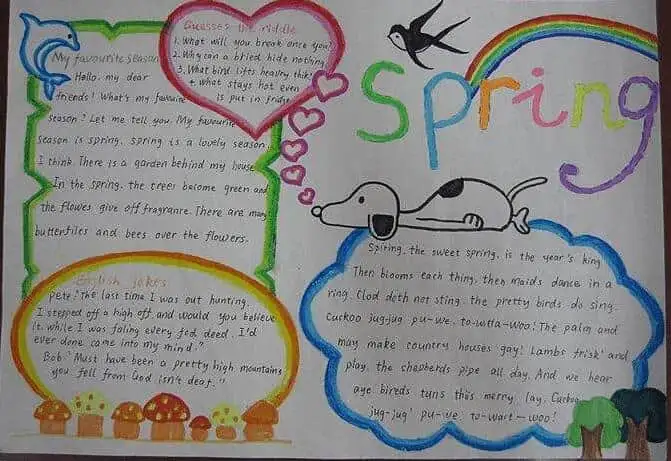 My favourite season
Hello, my dear
friends! What's my favourite
season? Let me tell you. My favourite
season is spring. spring is a lovely season,
I think. There is a garden behind my house
In the spring, the trees become green and
the flowes give off fragranre. There are many
butterflies and bees over the flowers.
Guesses the riddle
1. What will you break once you
2. Why can a bried hide nothing
3. What bird lifts heavny thik
4. What stays hot even
is put in fridge
Spring
English jokes
Pete: "The last time I was out hunting.
I stepped off a high off, and would you believe
it. while I was faling every fed deed. I'd
ever done come into my mind."
Bob: "Must have been a pretty high mountains
you fell from God isn't deaf."
Spiring, the sweet spring, is the year's king
Then blooms each thing, then maids dance in a
ring. Clod doth not sting. the pretty birds do sing.
Cuckoo jug-jug pu-we. to-witta-Woo! The palm and
may make country houses gay! Lambs frisk and
play, the shepherds pipe all day. And we hear
aye bireds tuns this merry lay. Cuckoo
jug-jug' pu-we. to-wart-woo!